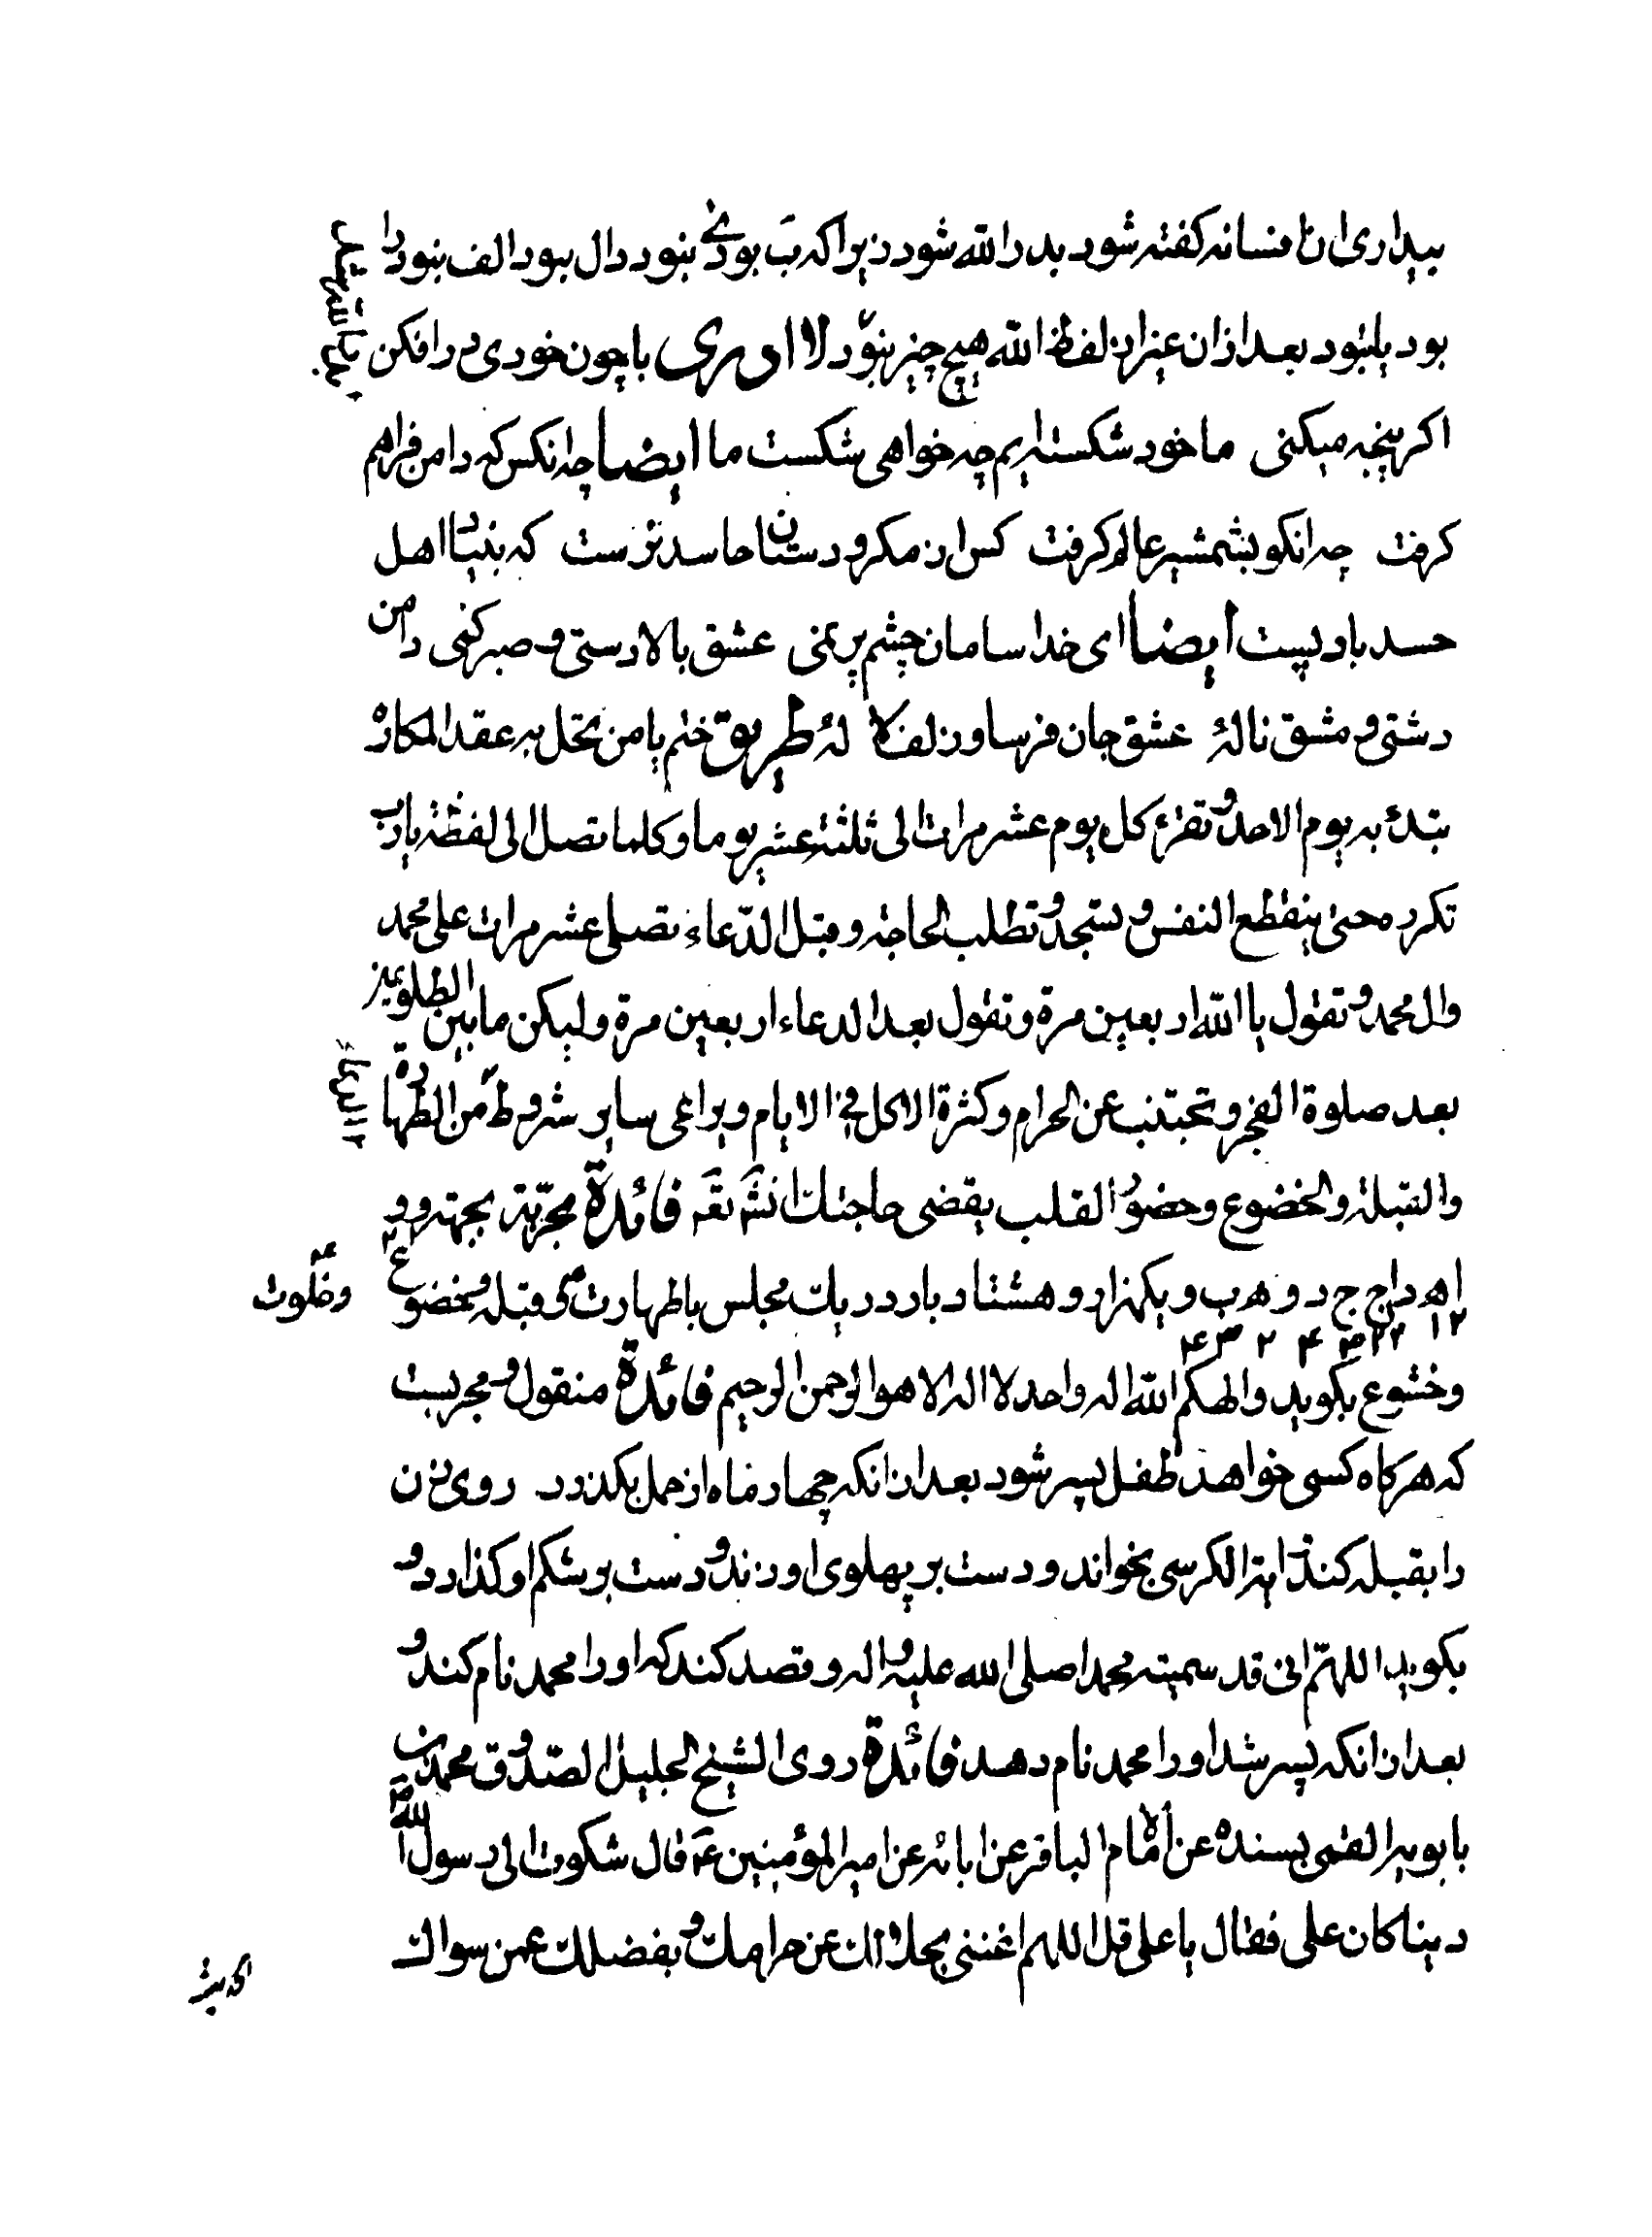 بیداری از افسانه کفته شود بدر الله شود زیراکه ب بود نبود دال بود الف نبود را
بود یا نبود بعد ازان غیر از لفظ الله هیچ چیز نبود لا ادری با چون خودی در افکن
اکر پنجه میکنی ما خود شکسته ایم چه خواهی شکست ما ایضا چه انکس که دامن فراهم
کرفت چه انکو بشمشیر عالم کرفت کس از مکر و دستان حاسد نرست که بنیاد اهل
حسد باد نیست ایضا ای خدا سامان چشم پر نمی عشق بالادستی و صبر کمی دامن
دشتی و مشق ناله عشق جان فرسا و زلف لا له طریق ختم یا من تحل به عقد المکاره
بتدئ به یوم الاحد و تقرء کل یوم عشر مرات الی ثلثة عشر یوما و کلما تصل الی لفظة یا رب
تکرره حتی ینقطع النفس و تسجد و تطلب الحاجة و قبل الدعاء تصلی عشر مرات علی محمد
وال محمد و تقول یا الله اربعین مرة و تقول بعد الدعاء اربعین مرة ولیکن ما بین الطلوعین
بعد صلوة الفجر و تجتنب عن الحرام و کثرة الاکل فی الایام و یراعی سایر شروط من الطهارة
والقبلة والخضوع و حضور القلب یقضی حاجتك انشه تعه فائدة مجربة بجهة
اهداج ج د و ه ب و یکهزار و هشتاد بار در یك مجلس با طهارت و قبله و خضوع
وخلوت
و خشوع بکوید والهکم الله اله واحد لا اله الا هو الرحمن الرحیم فائدة منقول و مجربست
که هرکاه کسی خواهد طفل پسر شود بعد از انکه چهار ماه از حمل بکذرد روی زن
را بقبله کند و ایة الکرسی بخواند و دست بر پهلوی او زند و دست بر شکم او کذارد و
بکوید اللهم انی قد سمیته محمدا صلی الله علیه واله و قصد کند که او را محمد نام کند و
بعد از انکه پسر شد او را محمد نام دهد فائدة روی الشیخ الجلیل الصدوق محمد بن
بابویه القمی بسنده عن الامام الباقر عن ابائه عن امیر المؤمنین ع قال شکوت الی رسول الله ص
دینا کان علی فقال یا علی قل اللهم اغننی بحلالك عن حرامك و بفضلك عمن سواك
الحدیث